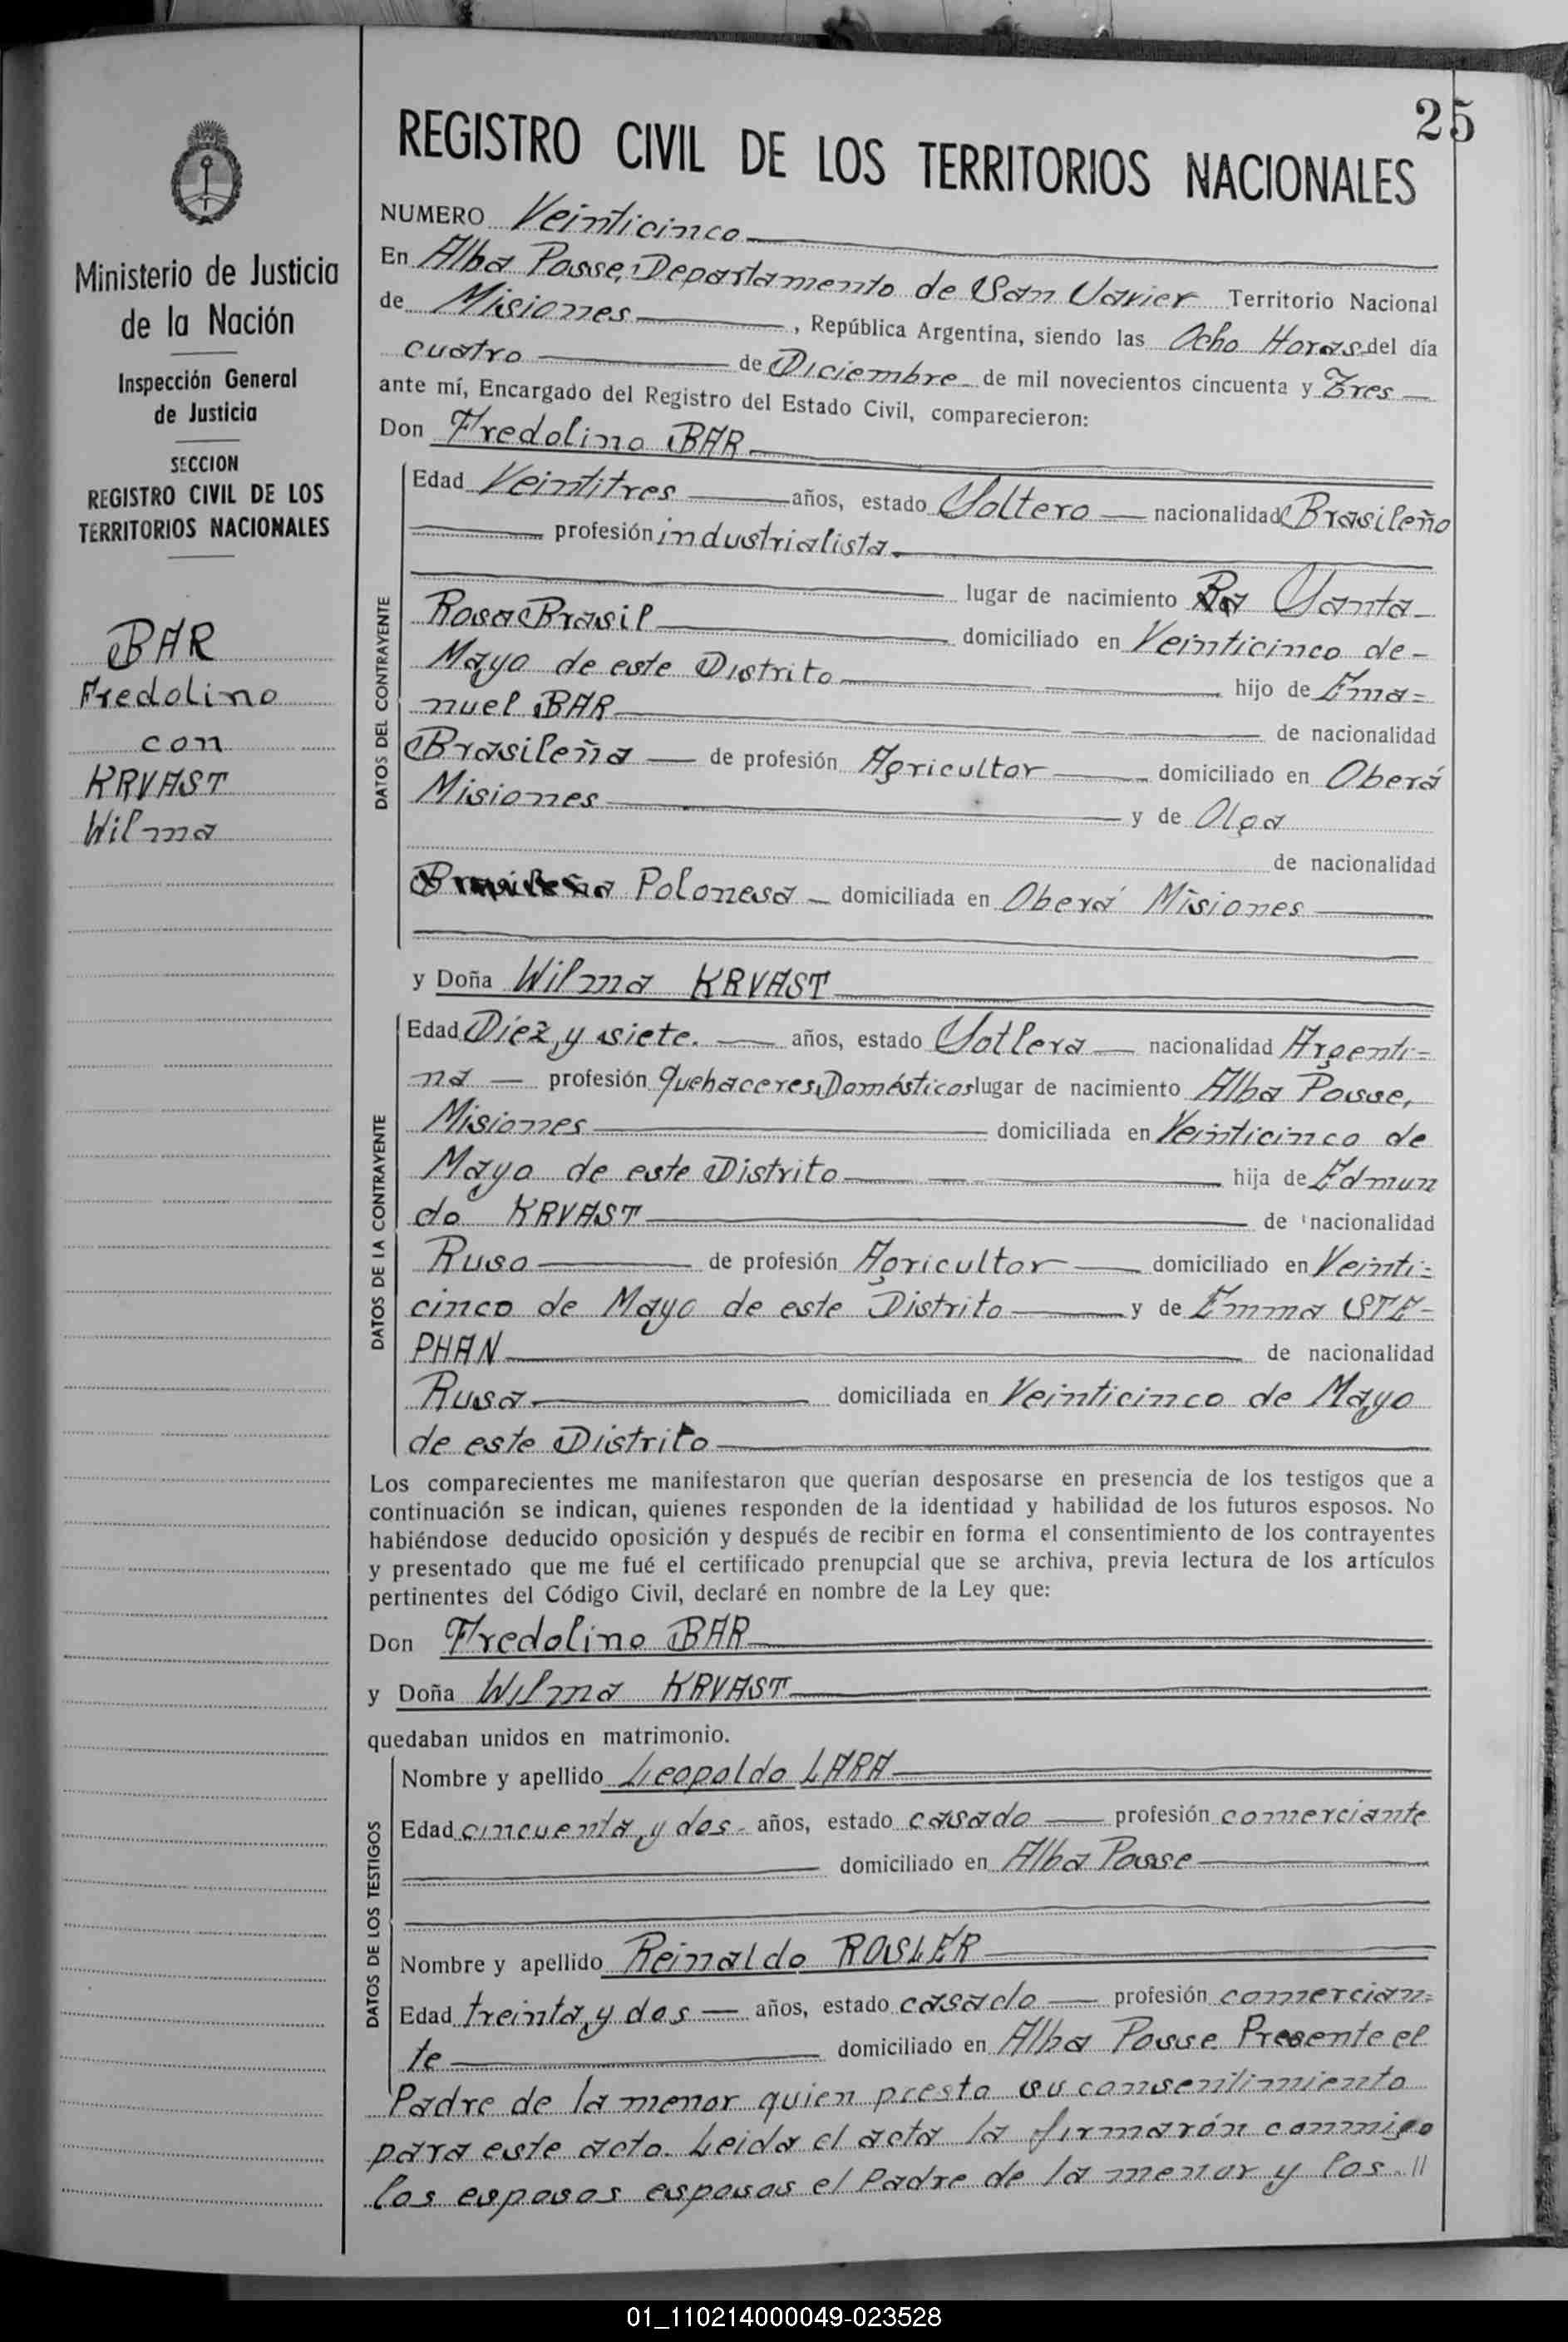 25
REGISTRO CIVIL DE LOS TERRITORIOS NACIONALES
Ministerio de Justicia
de la Nación
Inspección General
de Justicia
SECCION
REGISTRO CIVIL DE LOS
TERRITORIOS NACIONALES
BAR
Fredolino
con
KRVAST
Wilma
NUMERO Veinticinco
En Alba Posse, Departamento de San Javier Territorio Nacional
de Misiones, República Argentina, siendo las Ocho Horas del día
cuatro de Diciembre de mil novecientos cincuenta y Tres
ante mí, Encargado del Registro del Estado Civil, comparecieron:
Don Fredolino BAR
DATOS DEL CONTRAYENTE
Edad Veintitres años, estado Soltero nacionalidad Brasileño
profesión industrialista
lugar de nacimiento Santa
Rosa Brasil domiciliado en Veinticinco de
Mayo de este Distrito hijo de Ema=
nuel BAR de nacionalidad
Brasileña de profesión Agricultor domiciliado en Oberá
Misiones y de Olga
de nacionalidad
Polonesa domiciliada en Oberá Misiones
y Doña Wilma KRVAST
DATOS DE LA CONTRAYENTE
Edad Diez y siete. años, estado Sotlera nacionalidad Argenti=
na profesión quehaceres Domésticos lugar de nacimiento Alba Posse,
Misiones domiciliada en Veinticinco de
Mayo de este Distrito hija de Edmun
do KRVAST de nacionalidad
Ruso de profesión Agricultor domiciliado en Veinti=
cinco de Mayo de este Distrito y de Emma STE=
PHAN de nacionalidad
Rusa domiciliada en Veinticinco de Mayo
de este Distrito
Los comparecientes me manifestaron que querían desposarse en presencia de los testigos que a
continuación se indican, quienes responden de la identidad y habilidad de los futuros esposos. No
habiéndose deducido oposición y después de recibir en forma el consentimiento de los contrayentes
y presentado que me fué el certificado prenupcial que se archiva, previa lectura de los artículos
pertinentes del Código Civil, declaré en nombre de la Ley que:
Don Fredolino BAR
y Doña Wilma KRVAST
quedaban unidos en matrimonio.
DATOS DE LOS TESTIGOS
Nombre y apellido Leopoldo LARA
Edad cincuenta y dos años, estado casado profesión comerciante
domiciliado en Alba Posse
Nombre y apellido Reinaldo ROSLER
Edad treinta y dos años, estado casado profesión comercian=
te domiciliado en Alba Posse Presente el
Padre de la menor quien presto su consentimiento
para este acto. Leida el acta la firmarón conmigo
los esposos esposos el Padre de la menor y los //
01_110214000049-023528